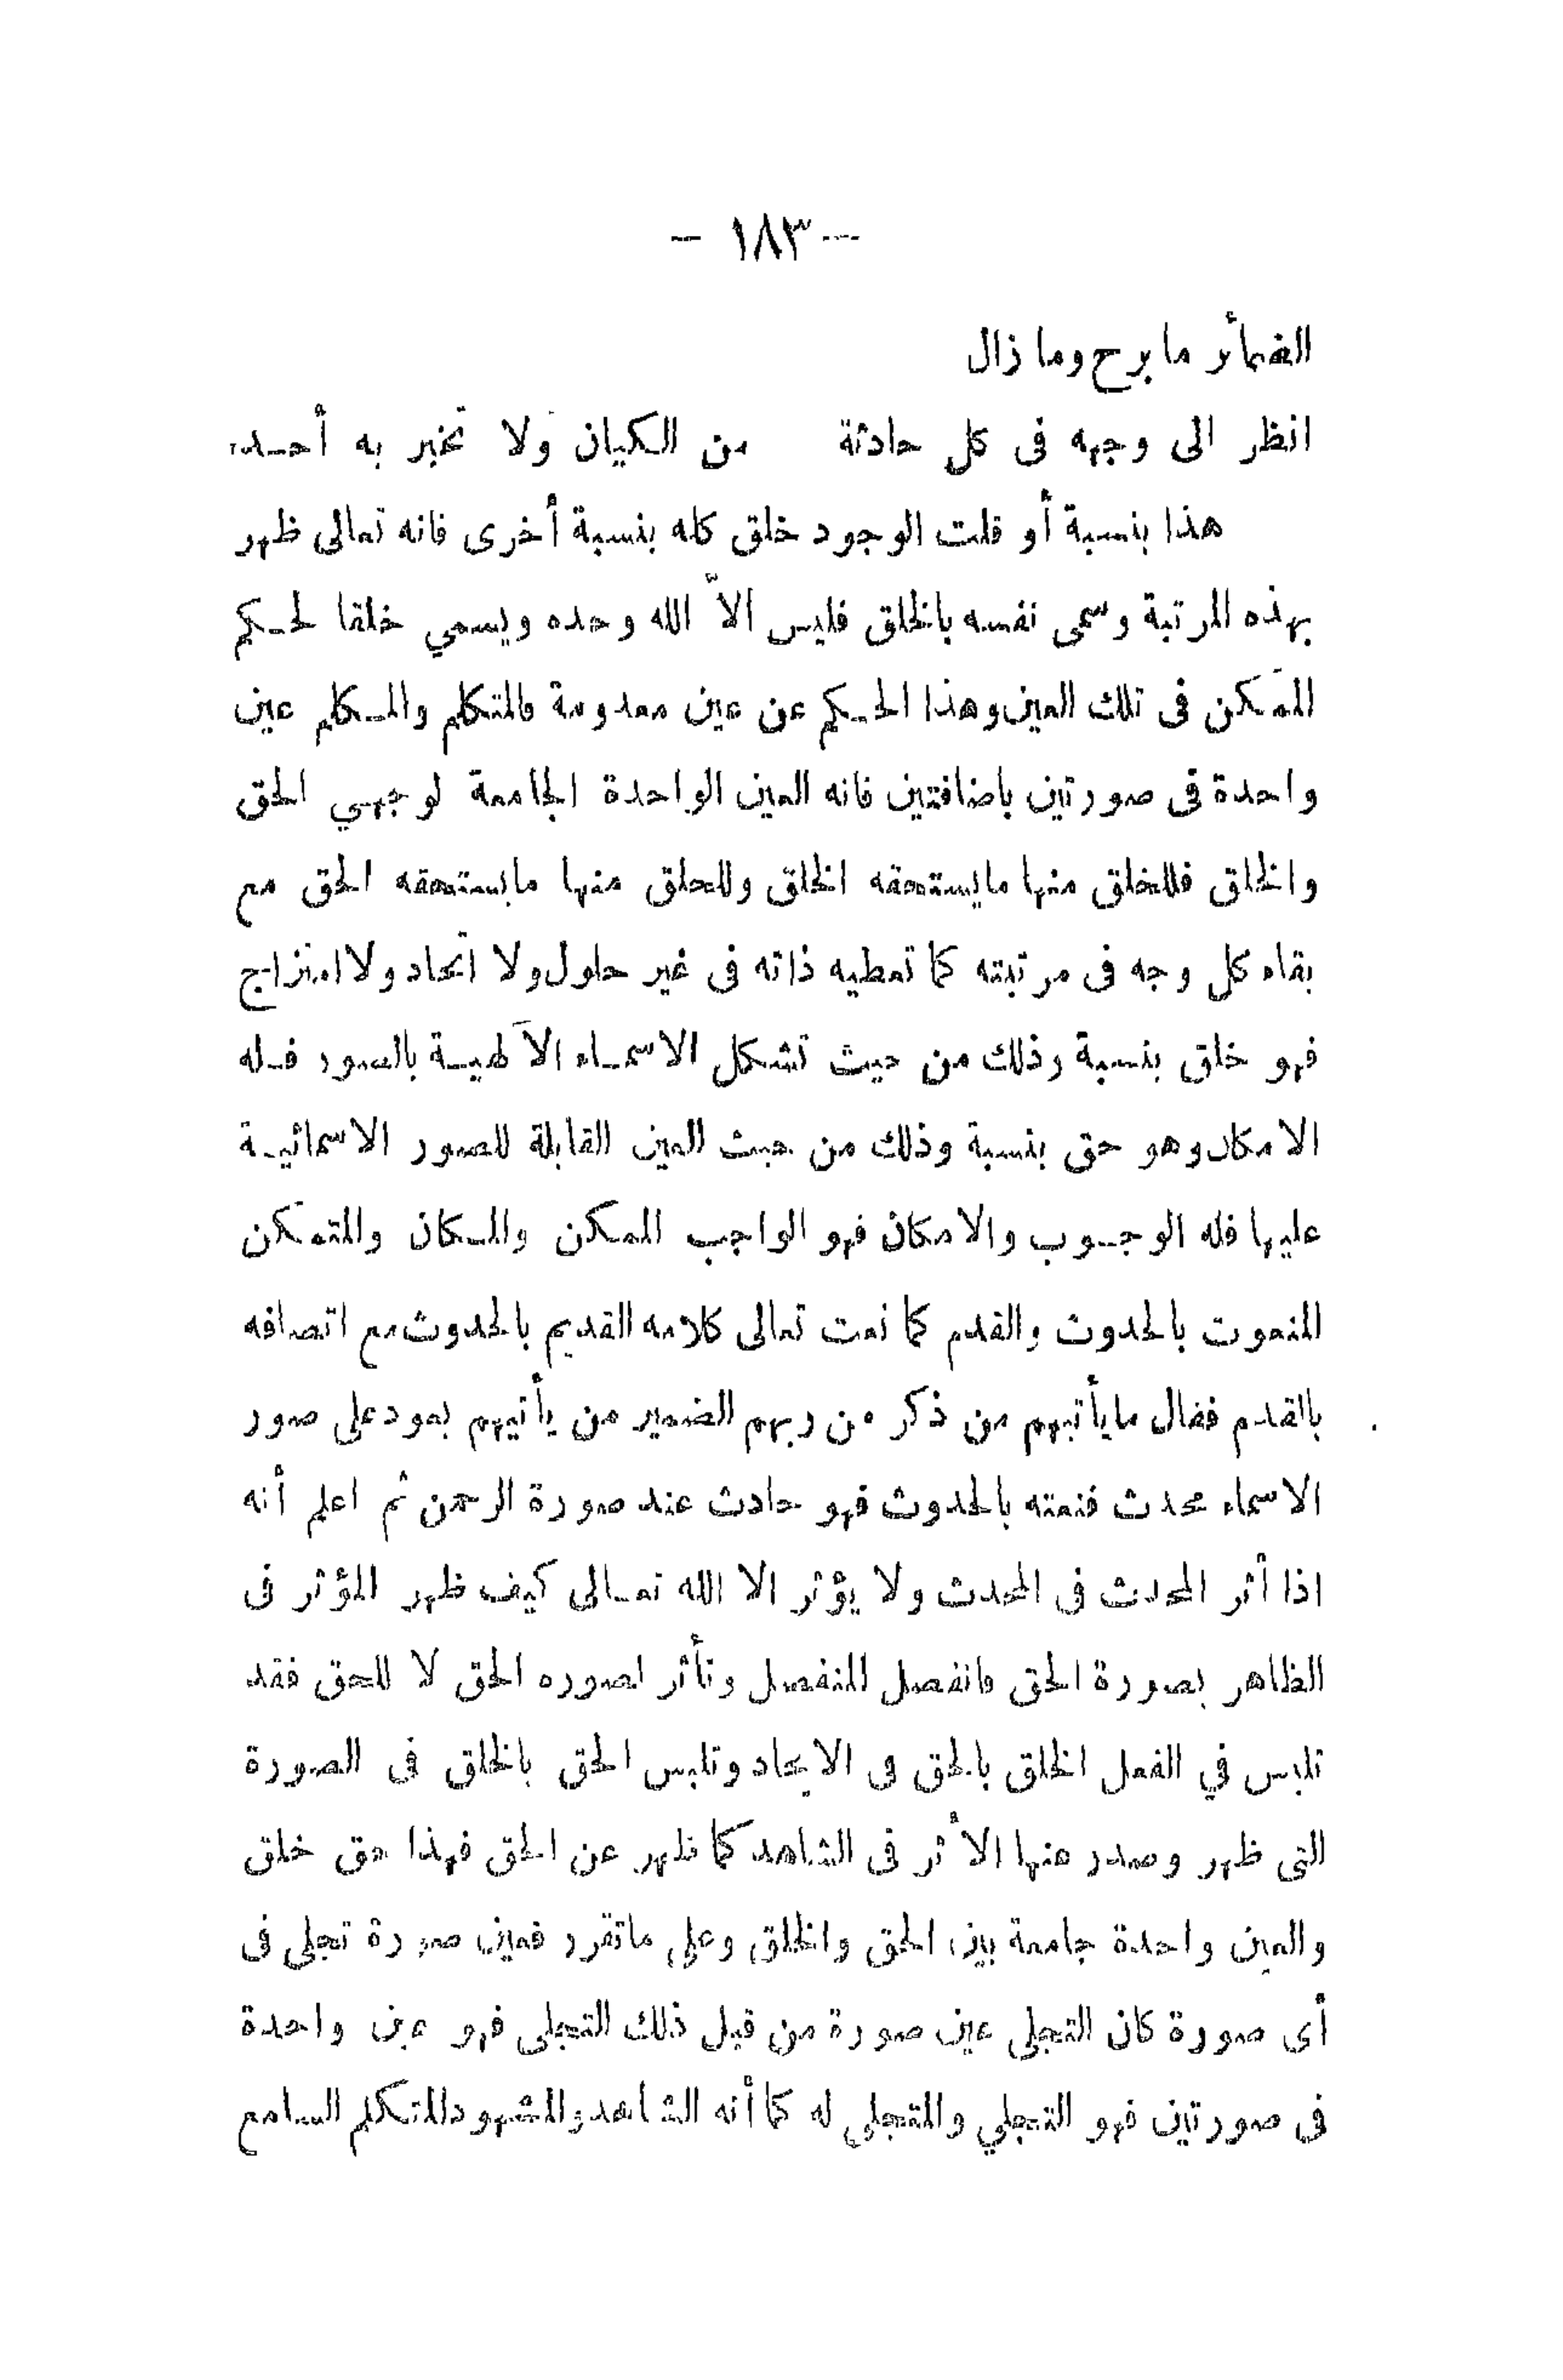 — ١٨٣ —
الضمأئر ما برح وما زال
انظر الى وجهه فى كل حادثة من الكيان ولا تخبر به أحدا
هذا بنسبة أو قلت الوجود خلق كله بنسبة أخرى فانه تعالى ظهر
بهذه المرتبة وسمى نفسه بالخلق فليس الاّ الله وحده ويسمي خلقا لحكم
الممكن فى تلك العين وهذا الحكم عن عين معدومة فالمتكلم والمكلم عين
واحدة فى صورتين باضافتين فانه العين الواحدة الجامعة لوجهي الحق
والخلق فللخلق منها مايستحقه الخلق وللحق منها مايستحقه الحق مع
بقاء كل وجه فى مرتبته كما تعطيه ذاته فى غير حلول ولا اتحاد ولا امتزاج
فهو خلق بنسبة وذلك من حيث تشكل الاسماء الآلهية بالصور فله
الامكان وهو حق بنسبة وذلك من حيث العين القابلة للصور الاسمائية
عليها فله الوجوب والامكان فهو الواجب الممكن والمكان والمتمكن
المنعوت بالحدوث والقدم كما نعت تعالى كلامه القديم بالحدوث مع اتصافه
بالقدم فقال مايأتيهم من ذكر من ربهم الضمير من يأتيهم يعود على صور
الاسماء محدث فنعته بالحدوث فهو حادث عند صورة الرحمن ثم اعلم أنه
اذا أثر المحدث فى المحدث ولا يؤثر الا الله تعالى كيف ظهر المؤثر فى
الظاهر بصورة الحق فانفصل المنفصل وتأثر لصوره الحق لا للحق فقد
تلبس في الفعل الخلق بالحق فى الايجاد وتلبس الحق بالخلق فى الصورة
التى ظهر وصدر عنها الأثر فى الشاهد كما ظهر عن الحق فهذا حق خلق
والعين واحدة جامعة بين الحق والخلق وعلى ماتقرر فعين صورة تجلى فى
أى صورة كان التجلى عين صورة من قبل ذلك التجلى فهو عين واحدة
فى صورتين فهو التجلي والمتجلى له كما أنه الشاهد والمشهود المتكلم السامع